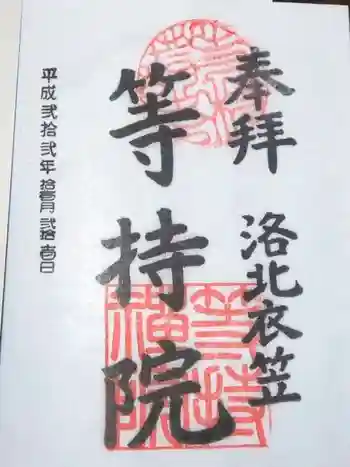 奉拝 洛北衣笠
等持院
平成弐拾弐年拾壱月弐拾壱日